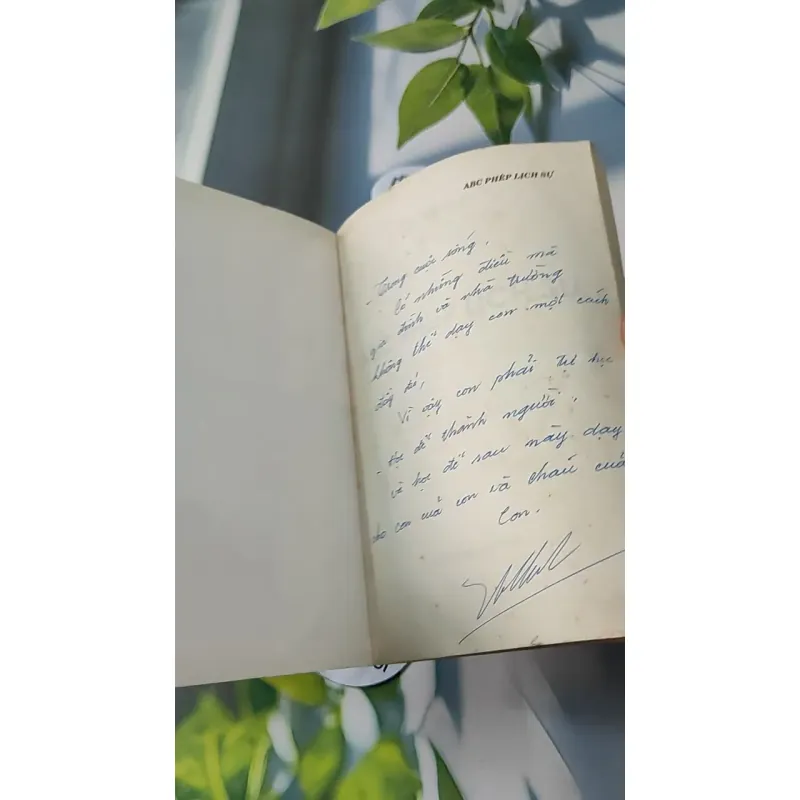 ABC PHÉP LỊCH SỰ
- Trong cuộc sống,
Có những điều mà
gia đình và nhà trường
không thể dạy con một cách
đầy đủ,
Vì vậy con phải tự học
- Học để thành người,
và học để sau này dạy
cho con của con và cháu của
Con.